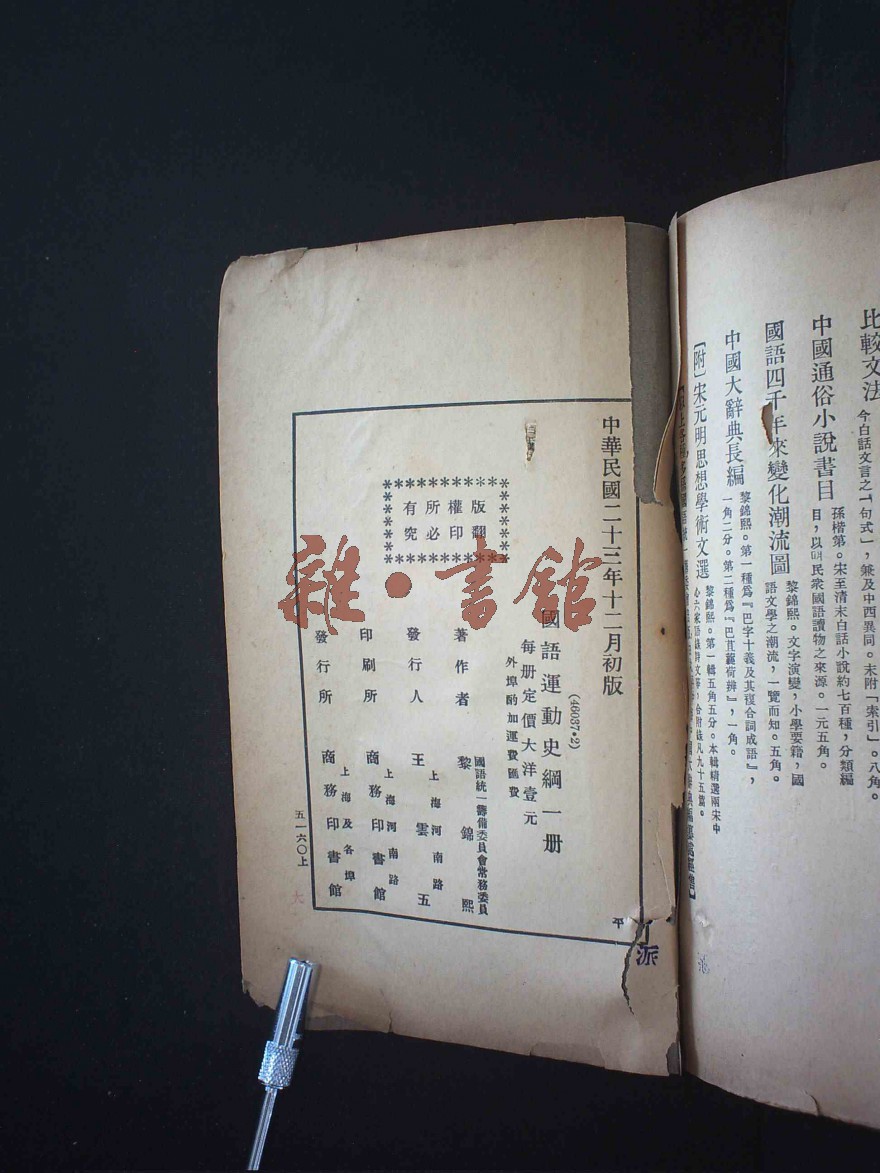 比較文法
今白話文言之「句式」，兼及中西異同。末附「索引」。八角。
中國通俗小說書目
孫楷第。宋至清末白話小說約七百種，分類編
目，以明民衆國語讀物之來源。一元五角。
國語四千年來變化潮流圖
黎錦熙。文字演變，小學要籍，國
語文學之潮流，一覽而知。五角。
中國大辭典長編
黎錦熙。第一種爲『巴字十義及其複合詞成語』，
一角二分。第二種爲『巴苴蘧荷辨』，一角。
［附］宋元明思想學術文選
黎錦熙。第一輯五角五分。本輯精選兩宋中
中華民國二十三年十二月初版
(46037·2)
國語運動史綱一册
每册定價大洋壹元
外埠酌加運費匯費
版權所有
翻印必究
著作者
國語統一籌備委員會常務委員
黎錦熙
發行人
上海河南路
王雲五
印刷所
上海河南路
商務印書館
發行所
上海及各埠
商務印書館
五一六〇上
大
派
池
雜·書館